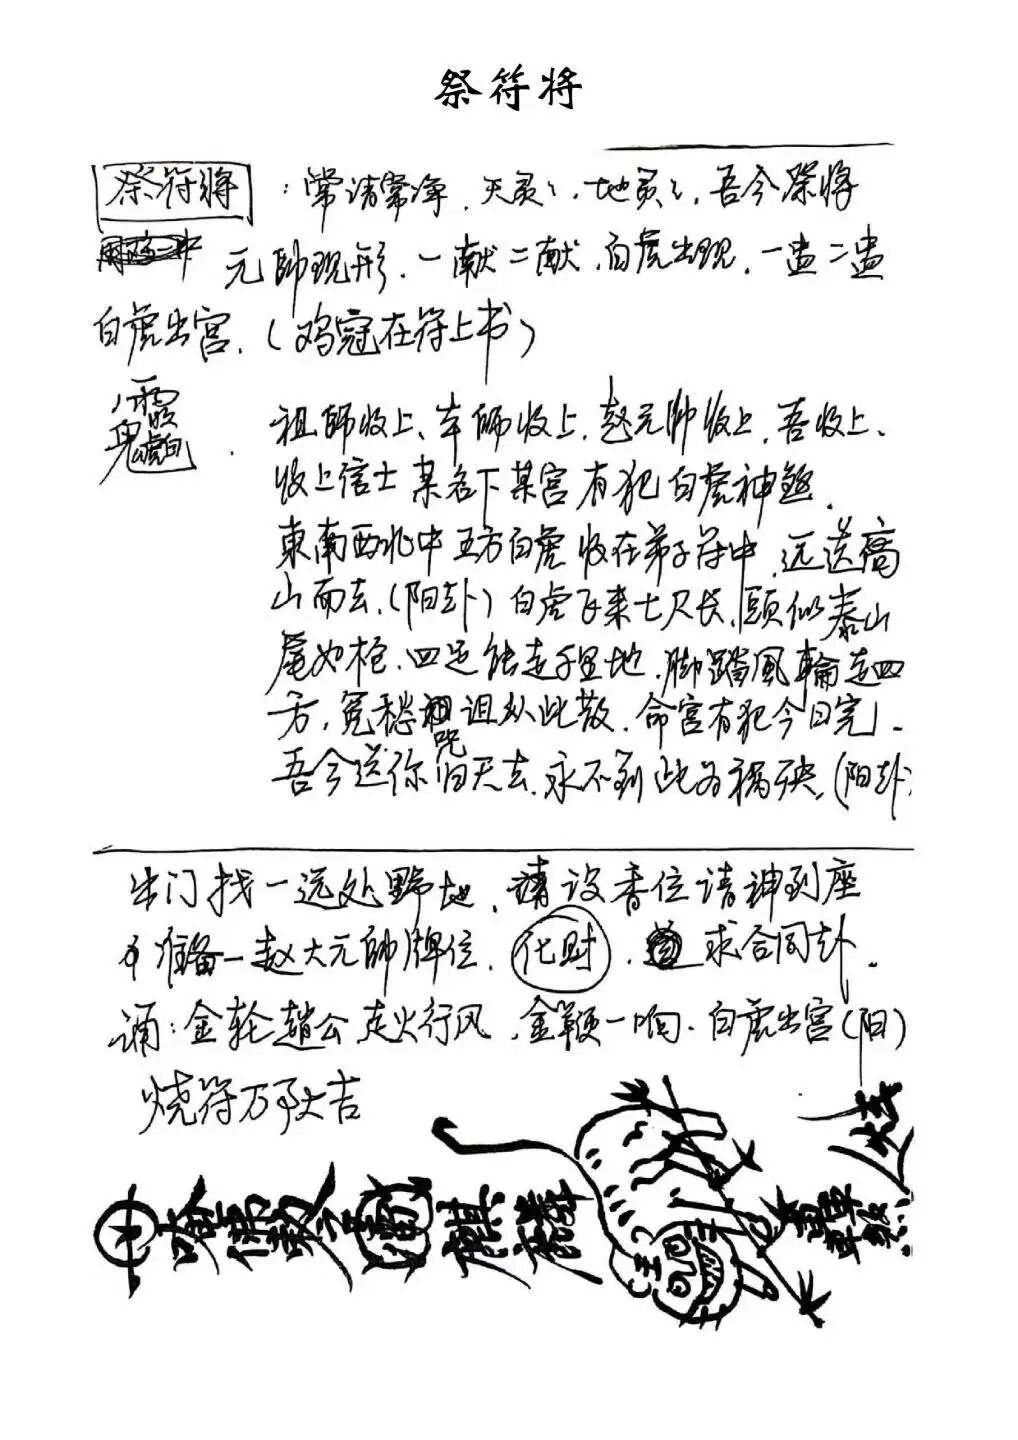 祭符将
祭符将：常清常净，天灵々，地灵々，吾今祭将
元帥现形，一献二献，白虎出现，一盅二盅
白虎出宫，（鸡冠在符上书）
祖師收上、本師收上，赵元帅收上，吾收上、
收上信士某名下某宫有犯白虎神煞，
東南西北中五方白虎收在弟子符中，远送高
山而去，（阳卦）白虎飞来七尺长，頭似泰山
尾如枪，四足能走千里地，脚踏風輪走四
方，冤愁咒诅从此散，命宫有犯今日完」．
吾今送你归天去，永不到此为祸殃，（阳卦）
出门找一远处野地，请设香位请神到座
准备一赵大元帅牌位，化财，求合同卦．
诵：金轮趙公走火行风，金鞭一响．白虎出宫（阳）
烧符万事大吉